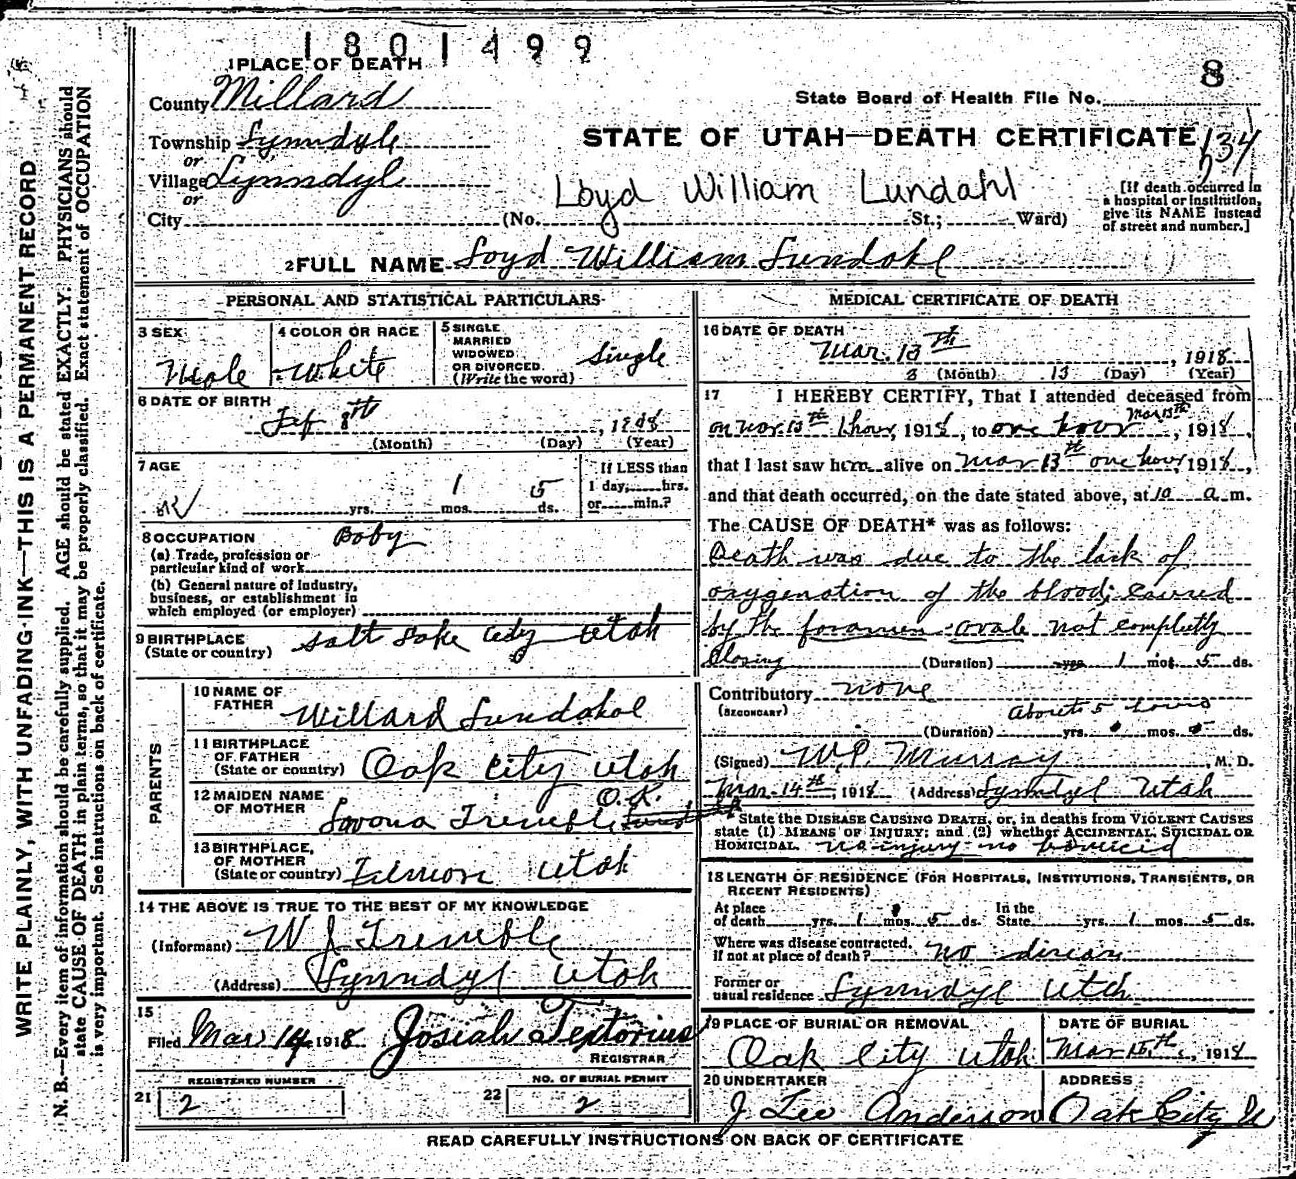 1801499
8
1 PLACE OF DEATH
County Millard
State Board of Health File No.
Township Lynndyl
STATE OF UTAH—DEATH CERTIFICATE
134
or
Village Lynndyl
or
Loyd William Lundahl
[If death occurred in
a hospital or institution,
give its NAME instead
of street and number.]
City (No. St.; Ward)
2 FULL NAME Loyd William Lundahl
PERSONAL AND STATISTICAL PARTICULARS
3 SEX
Male
4 COLOR OR RACE
White
5 SINGLE
MARRIED
WIDOWED
OR DIVORCED.
(Write the word)
Single
6 DATE OF BIRTH
8th , 1918
(Month) (Day) (Year)
7 AGE
1 5
yrs. mos. ds.
If LESS than
1 day, hrs.
or min.?
8 OCCUPATION Baby
(a) Trade, profession or
particular kind of work
(b) General nature of industry,
business, or establishment in
which employed (or employer)
9 BIRTHPLACE
(State or country) Salt Lake City Utah
PARENTS
10 NAME OF
FATHER Willard Lundahl
11 BIRTHPLACE
OF FATHER
(State or country) Oak City Utah
12 MAIDEN NAME
OF MOTHER Trimble O.K.
13 BIRTHPLACE,
OF MOTHER
(State or country) Utah
14 THE ABOVE IS TRUE TO THE BEST OF MY KNOWLEDGE
(Informant) W J Trimble
(Address) Lynndyl Utah
15
Filed Mar 14, 1918 Josiah Textorius
REGISTRAR
REGISTERED NUMBER
21 2
NO. OF BURIAL PERMIT
22 2
MEDICAL CERTIFICATE OF DEATH
16 DATE OF DEATH
Mar. 13th , 1918
3 (Month) 13 (Day) (Year)
17 I HEREBY CERTIFY, That I attended deceased from
on Mar 13th 1 hour, 1918, to one hour Mar 13th, 1918,
that I last saw him alive on Mar 13th one hour, 1918,
and that death occurred, on the date stated above, at 10 a. m.
The CAUSE OF DEATH* was as follows:
Death was due to the lack of
oxygenation of the blood; caused
by the foramen ovale not completly
closing (Duration) yrs. 1 mos. 5 ds.
Contributory none
(SECONDARY)
About 5 hours
(Duration) yrs. mos. ds.
(Signed) W.P. Murray, M. D.
Mar 14th, 1918 (Address) Lynndyl Utah
State the DISEASE CAUSING DEATH, or, in deaths from VIOLENT CAUSES
state (1) MEANS OF INJURY; and (2) whether ACCIDENTAL, SUICIDAL OR
HOMICIDAL. no injury no homicid
18 LENGTH OF RESIDENCE (FOR HOSPITALS, INSTITUTIONS, TRANSIENTS, OR
RECENT RESIDENTS)
At place
of death yrs. 1 mos. 5 ds. In the
State yrs. 1 mos. 5 ds.
Where was disease contracted,
if not at place of death? no disease
Former or
usual residence Lynndyl Utah
19 PLACE OF BURIAL OR REMOVAL
Oak City Utah
DATE OF BURIAL
Mar 15th, 1918
20 UNDERTAKER
J Lee Anderson
ADDRESS
Oak City U
READ CAREFULLY INSTRUCTIONS ON BACK OF CERTIFICATE
WRITE PLAINLY, WITH UNFADING INK—THIS IS A PERMANENT RECORD
N. B.—Every item of information should be carefully supplied. AGE should be stated EXACTLY: PHYSICIANS should
state CAUSE OF DEATH in plain terms, so that it may be properly classified. Exact statement of OCCUPATION
is very important. See instructions on back of certificate.